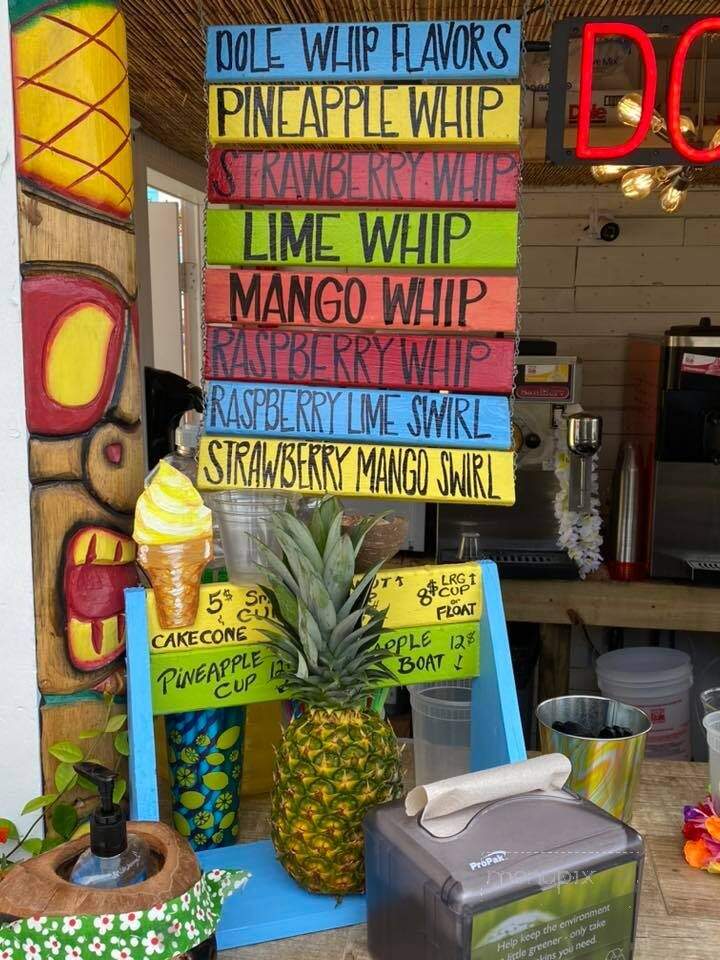 DOLE WHIP FLAVORS
DO
PINEAPPLE WHIP
STRAWBERRY WHIP
LIME WHIP
MANGO WHIP
RASPBERRY WHIP
RASPBERRY LIME SWIRL
STRAWBERRY MANGO SWIRL
5$ Sm
CU
& CAKECONE
UT
8$ LRG
CUP
or
FLOAT
PINEAPPLE 12
CUP
APPLE 12$
BOAT
ProPak
menupix
Help keep the environment
little greener - only take
kins you need.